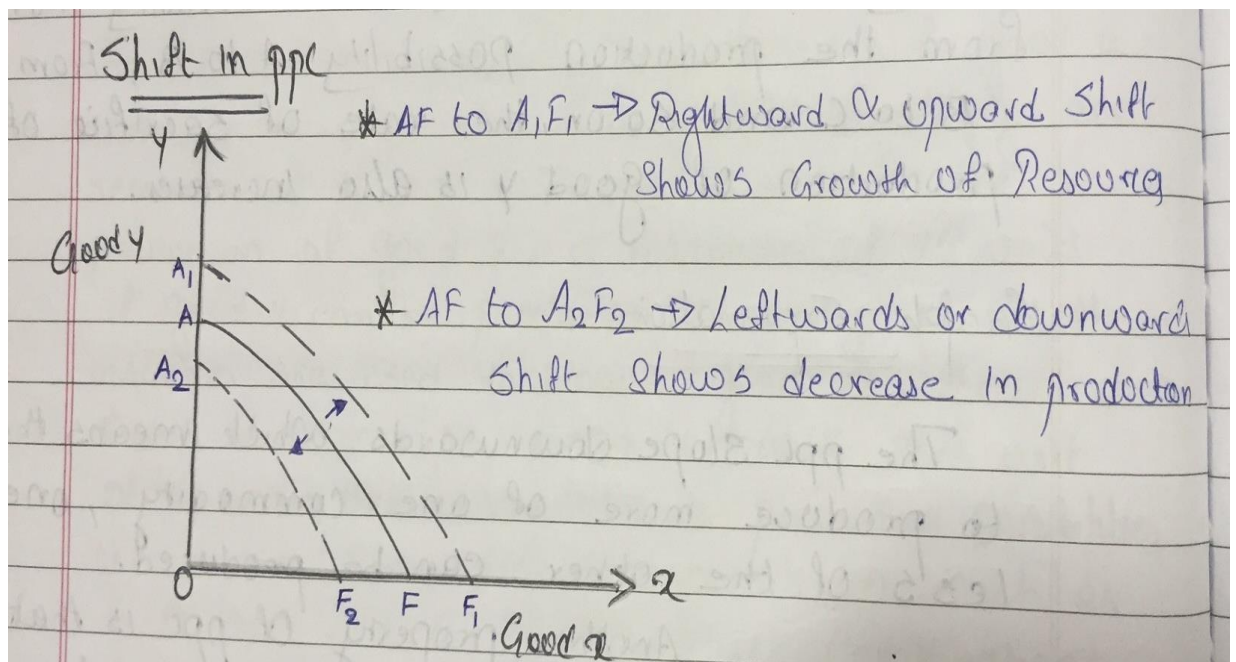 Shift in ppc
Y
* AF to A₁F₁ → Rightward & Upward Shift
Shows Growth of Resource
Good Y
A₁
* AF to A₂F₂ → Leftwards or downward
A
A₂
Shift Shows decrease in prodoction
O
F₂
F
F₁
x
Good x